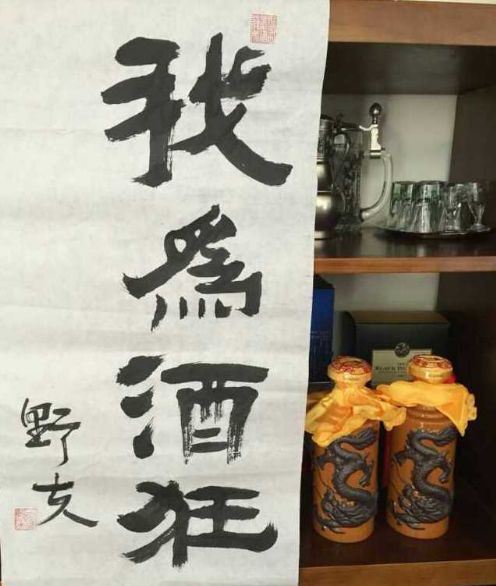 我為酒狂
野夫